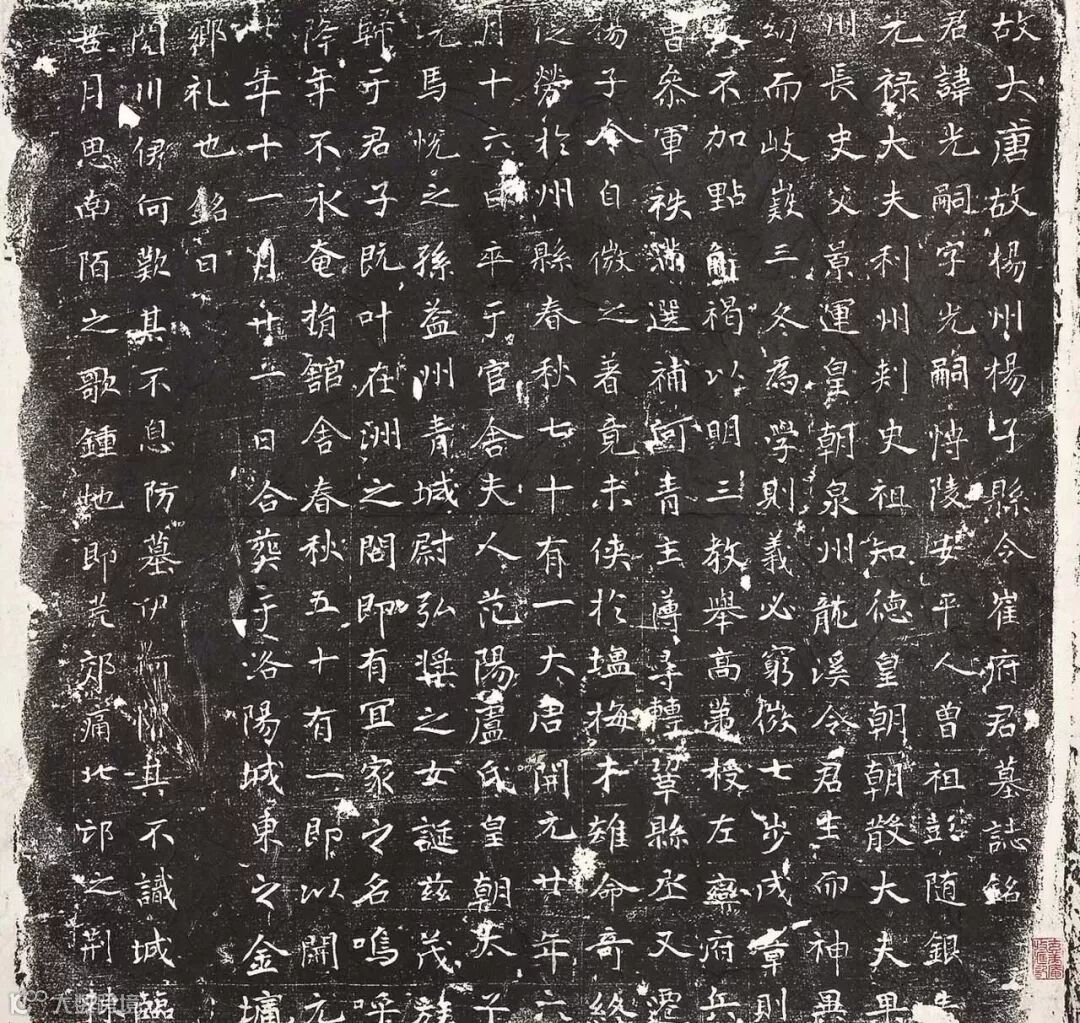 故大唐故楊州楊子縣令崔府君墓誌銘
君諱光嗣字光嗣愽陵安平人曾祖彭随銀青
光禄大夫利州刾史祖知徳皇朝朝散大夫果
州長史父景運皇朝泉州龍溪令君生而神異
幼而岐嶷三冬為學則義必窮微七步成章則
文不加點觧褐以明三教舉高第授左衛府兵
曹叅軍袟滿選補河青主薄尋轉鞏縣丞又遷
楊子令自微之著竟未俠扵塩梅才雄命奇終
従勞扵州縣春秋七十有一大唐開元廿年六
月十六日卒于官舍夫人范陽盧氏皇朝太子
洗馬恱之孫益州青城尉弘奬之女誕茲茂族
歸于君子既叶在洲之閟即有冝家之名嗚呼
降年不永奄捐舘舍春秋五十有一即以開元
廿年十一月廿二日合葬于洛陽城東之金墉
鄉礼也銘曰
閱川伊何歎其不息防墓伊何 其不識城臨
月思南陌之歌鍾地即荒郊痛北邙之荆棘